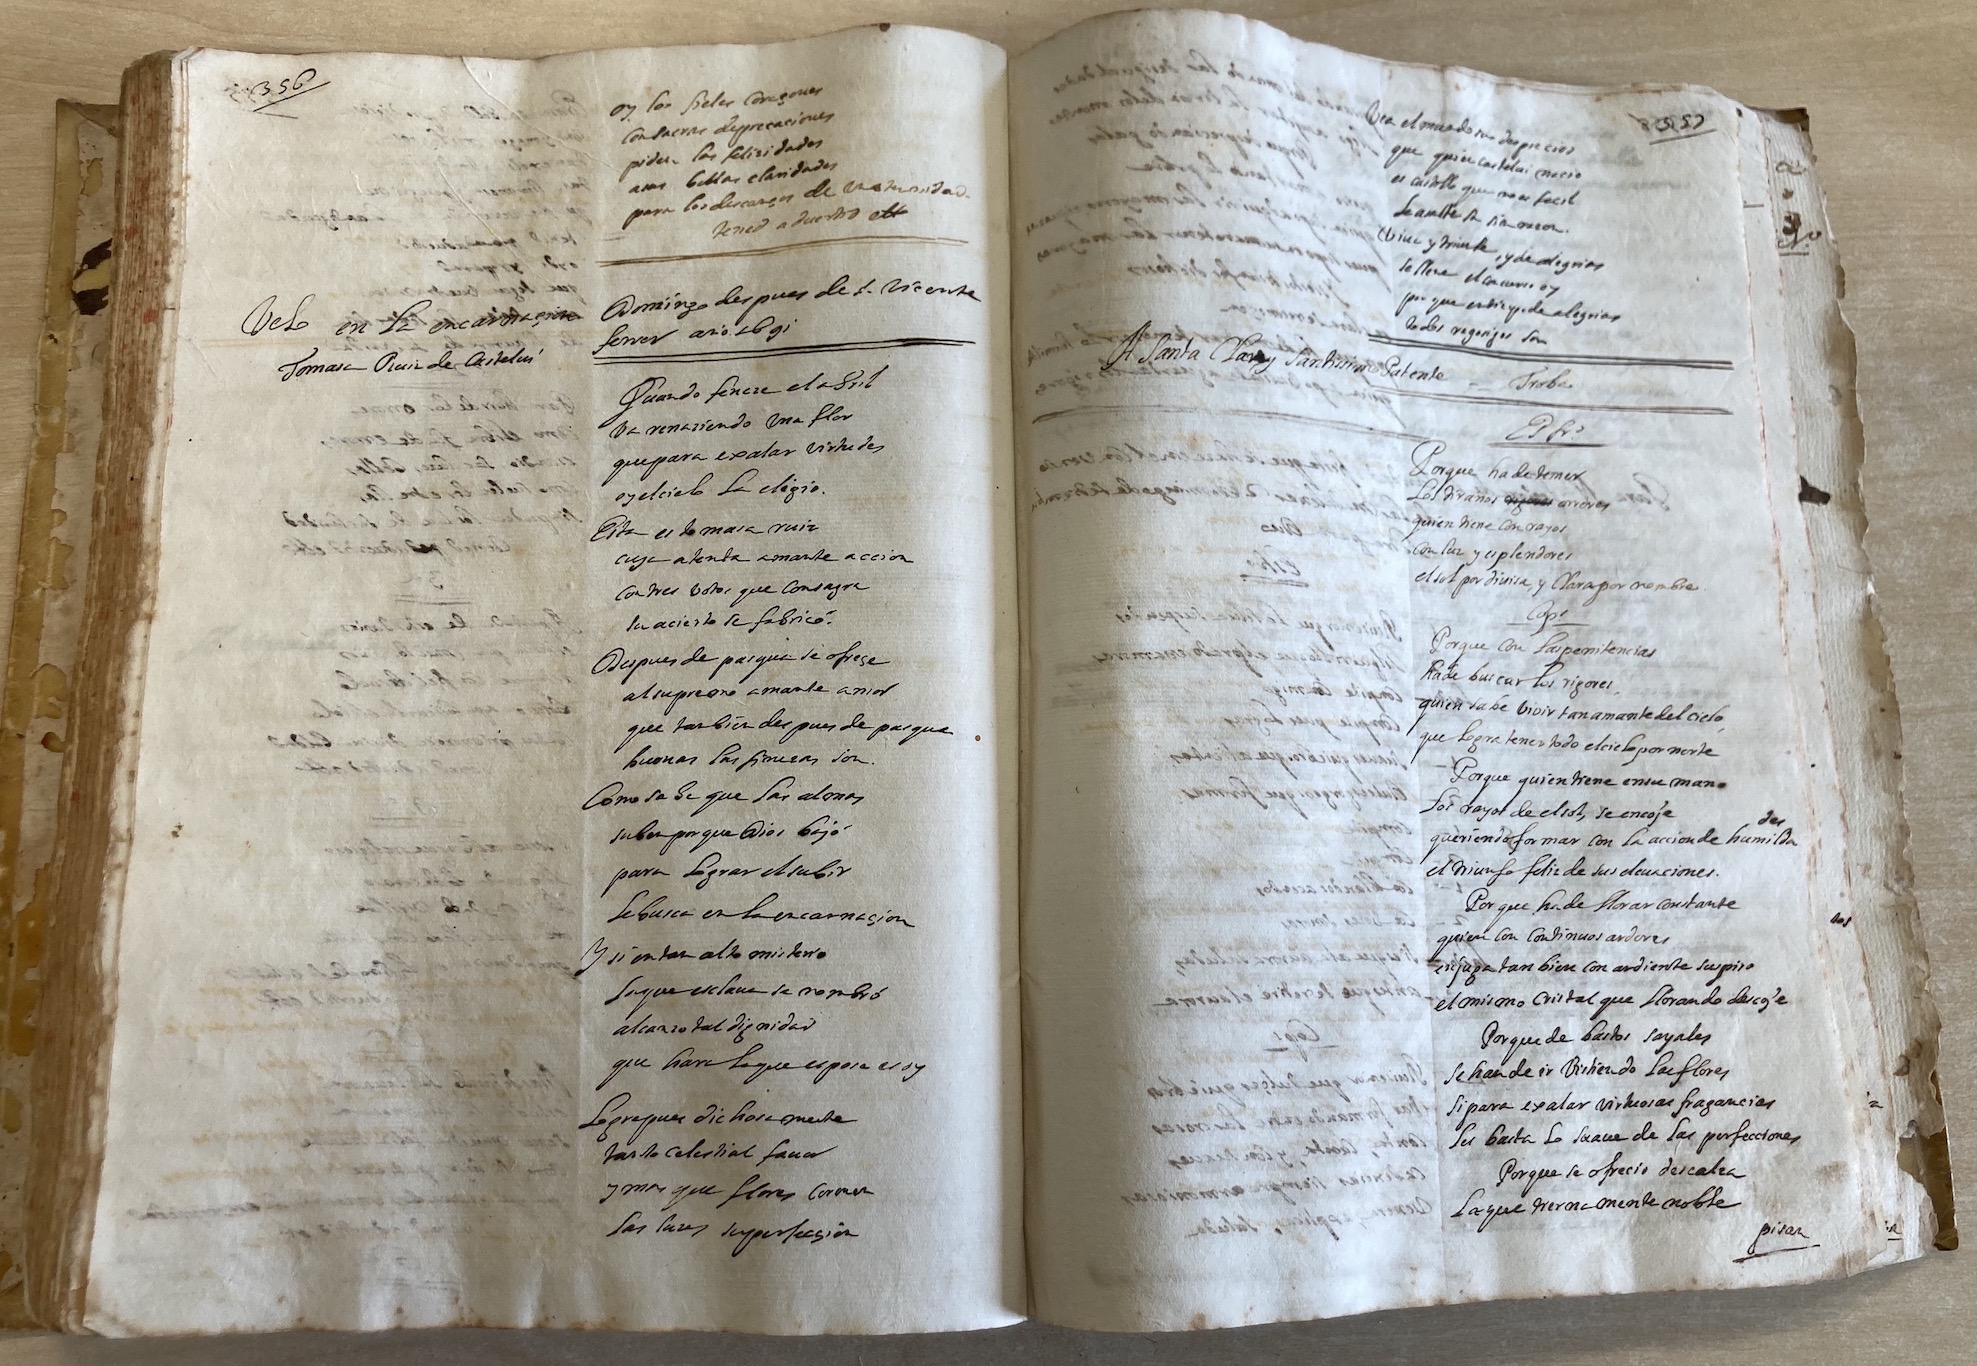 356
oy los fieles coraçones
con sacras deprecaciones
piden las felizidades
a sus bellas claridades
para los descansos de
tened a
Velo en la encarnaçion
Domingo despues de S. Vicente
ferrer año 1691
Tomasa Ruiz de Castelui
Quando fenece el abril
va renaziendo una flor
que para exalar virtudes
oy el cielo la eligio.
Esta es tomasa ruiz
cuya atenta amante accion
con tres votos que consagra
su acierto se fabricó.
Despues de pasqua se ofreçe
al supremo amante amor
que tanbien despues de pasqua
buenas las finezas son.
Como sabe que las almas
suben porque Dios bajó
para lograr el subir
se busca en la encarnaçion
Y si en tan alto misterio
la que esclava se nombró
alcanzo tal dignidad
que hara la que esposa es oy
Logre pues dichosamente
tanto celestial favor
y mas que flores coronen
las luzes su perfecçion
357
Vea el mundo sus desprecios
que quien castelui nacio
es castillo que no es facil
Viva y triunfe, y de alegrias
se llene el concurso oy
porque en dia de alegrias
todos regozijos son
A Santa Clara y Santissimo Patente
Porque ha de temer
Los tiranos errores
quien tiene con rayos
con luz y esplendores
el sol por divisa, y Clara por nombre
Cop.s
Porque con las penitencias
Ha de buscar los rigores,
quien sabe vivir tan amante del cielo,
que logra tener todo el cielo por norte
Porque quien tiene en su mano
Los rayos de el sol, se encoje
queriendo formar con la accion de humilda
des
el triunfo feliz de sus elevaciones.
Porque ha de llorar constante
quien con continuos ardores
enjuga tanbien con ardiente suspiro
el mismo cristal que llorando descoje
Porque de bastos sayales
se han de ir vistiendo las flores
si para exalar virtuosas fragancias
les basta lo suave de las perfecciones
Porque se ofrecio descalza
La que tiernamente noble
pisan